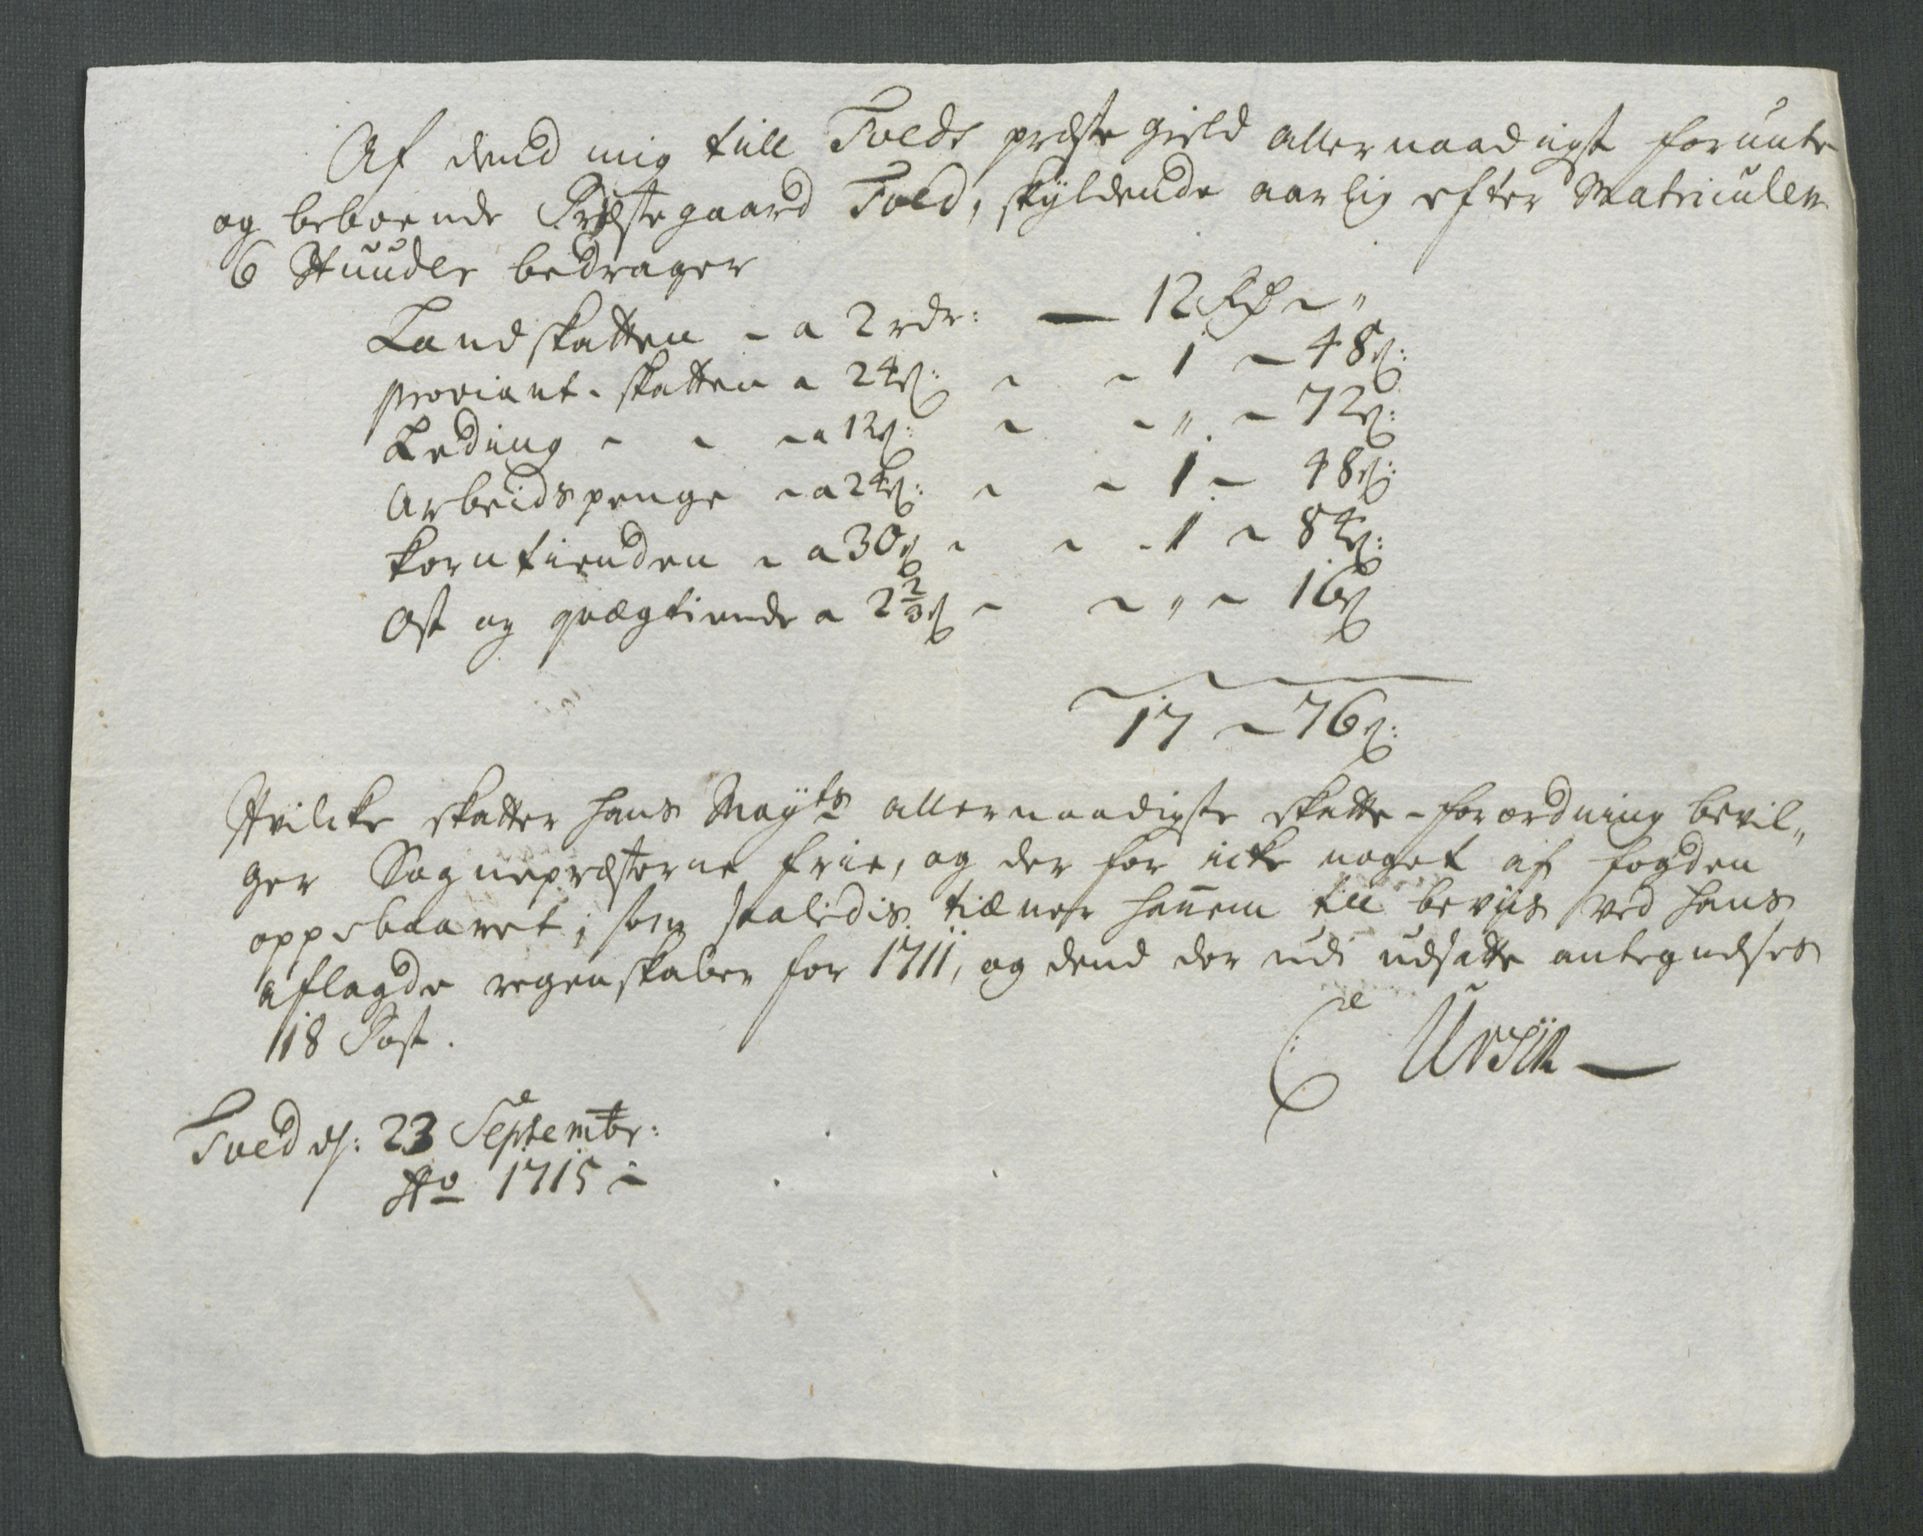 Af dend mig till Tveds præste gield allernaadigst forunte
og beboende Præstegaard Tved, skyldende aarlig efter Matriculen
6 Huuder bedrager
Landskatten - a 2 rdr: — 12 Rdr - "
Proviant-skatten a 24 ß: - - 1 - 48 ß:
Leding - - - a 12 ß: - - " - 72 ß:
Arbeidspenge - a 24 ß: - - 1 - 48 ß:
Korntienden - a 30 ß - - - 1 - 84 ß:
Ost og qvægtiende a 2 2/3 ß - - " - 16 ß
17 - 76 ß:
Hvilcke skatter hans Mayts allernaadigste skatte-forordning bevil-
ger Sognepræsterne frie, og der for icke noget af fogden
oppebaaret; som saaledis tiæner hannem till beviis ved hans
aflagde regenskaber for 1711, og dend der udi udsatte antegnelses
118 Post.
C Ursin
Tved d: 23 Septembr:
Ao 1715 -